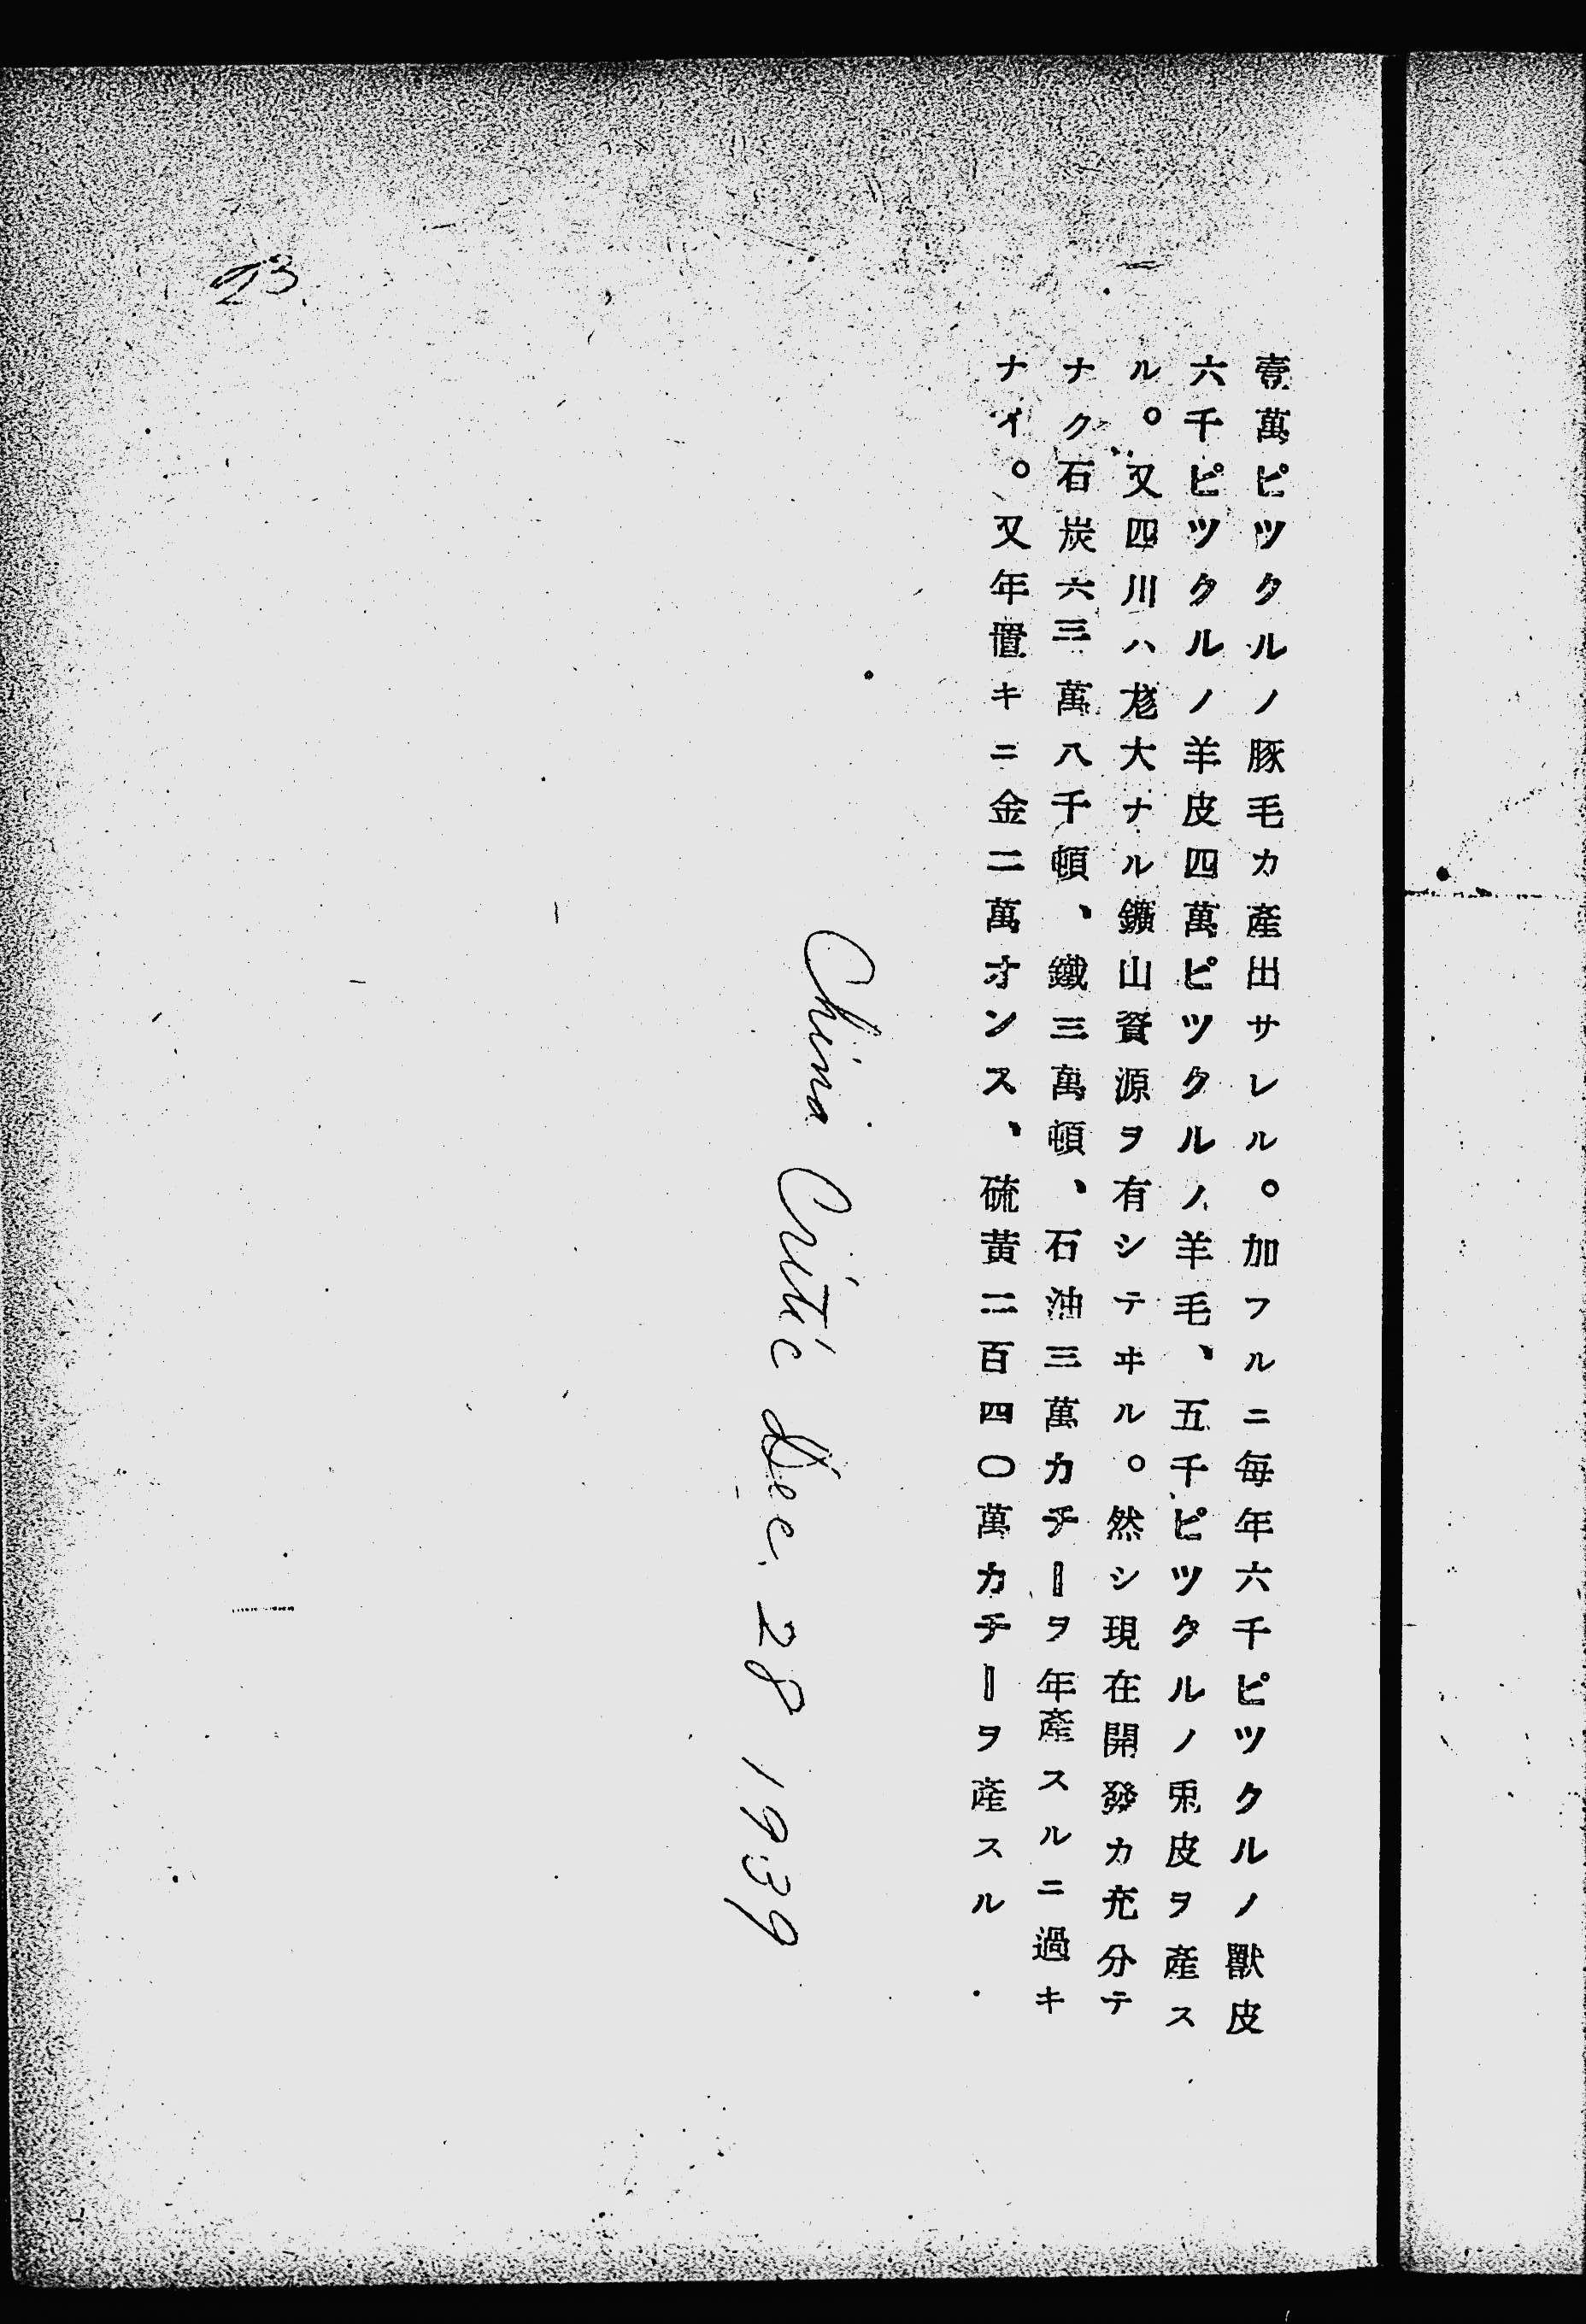 壹萬ピツクルノ豚毛カ産出サレル。加フルニ毎年六千ピツクルノ獸皮
六千ピツクルノ羊皮四萬ピツクルノ羊毛、五千ピツクルノ兎皮ヲ産ス
ル。又四川ハ尨大ナル鑛山資源ヲ有シテヰル。然シ現在開發カ充分テ
ナク石炭六三萬八千頓、鐵三萬頓、石油三萬カチーヲ年産スルニ過キ
ナイ。又年置キニ金二萬オンス、硫黄二百四〇萬カチーヲ産スル
China Critic Dec. 28 1939
23.